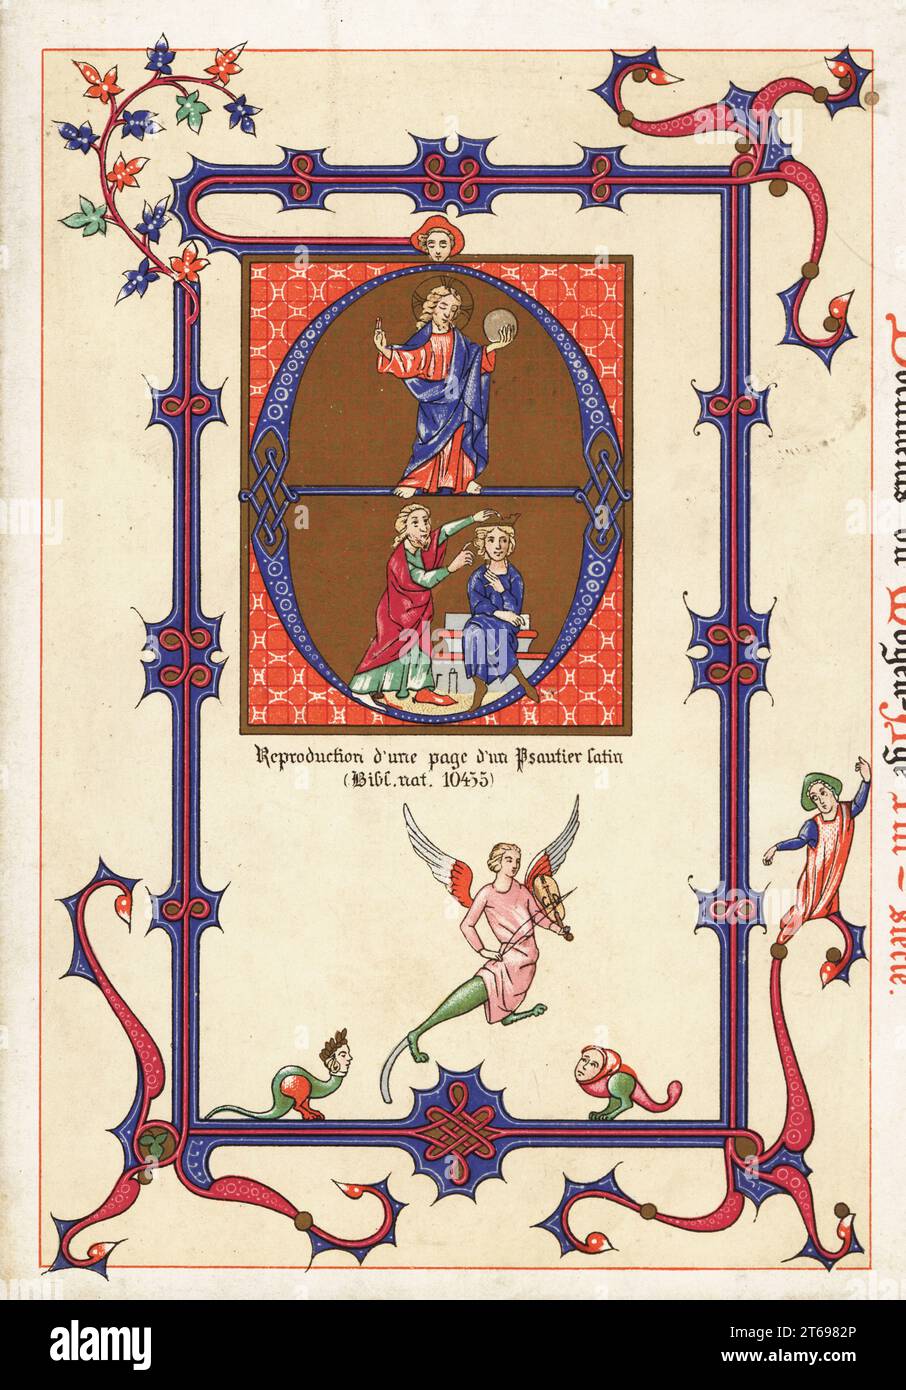 Reproduction d'une page d'un Psautier latin
(Bibl. nat. 10435)
Documents du Moyen-Age XIII e siècle.
alamy
alamy
alamy
Image ID: 2T6982P
www.alamy.com